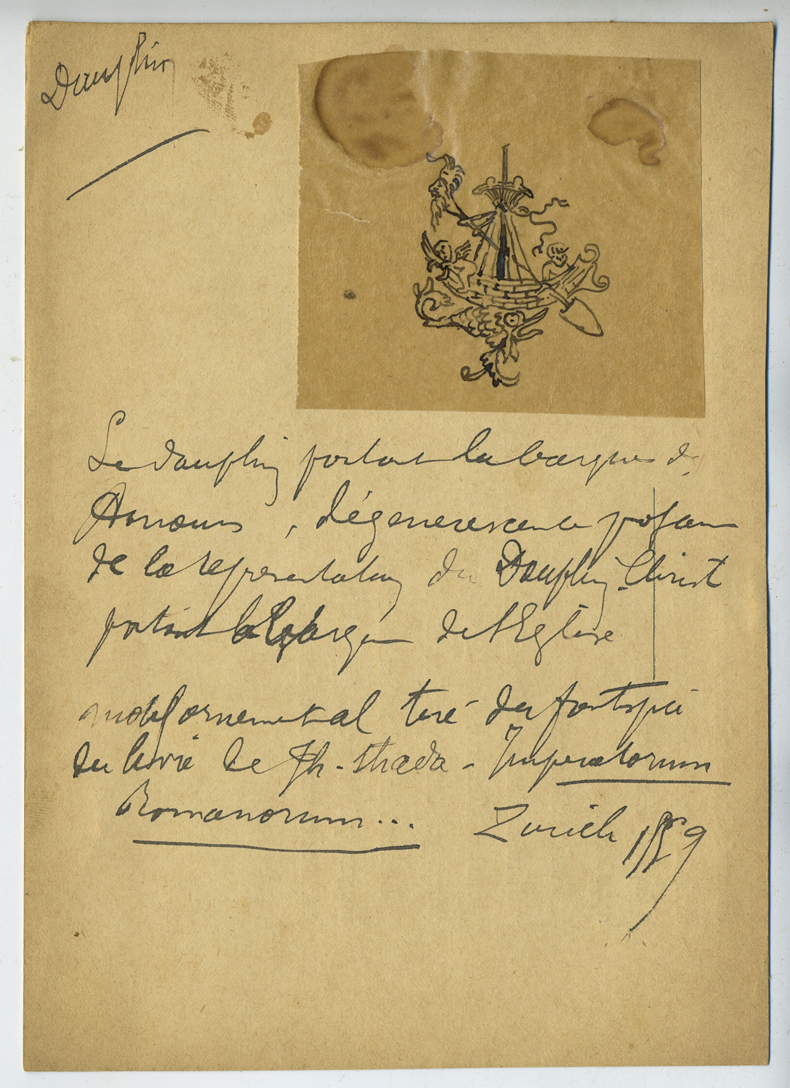 Dauphin
Le dauphin portant la barque des
Amours, dégénérescence profane
de la représentation du Dauphin-Christ
portant la barque de l'Eglise
motif ornemental tiré du frontispice
du livre de Jh. Strada - Imperatorum
Romanorum... Zurich 1559